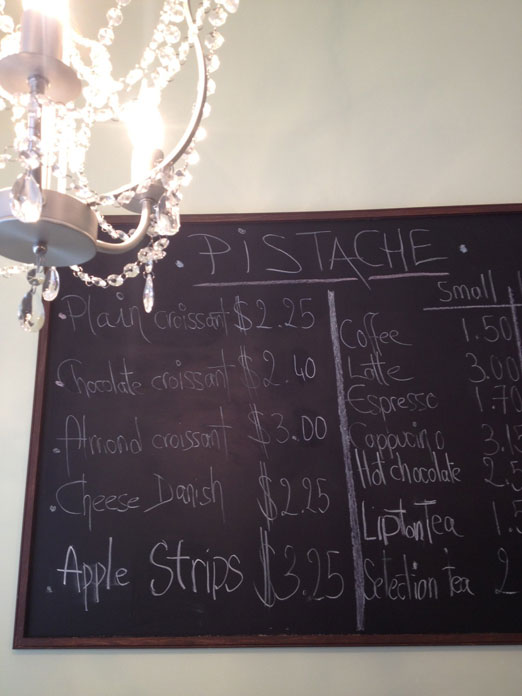 PiSTACHE
Plain croissant $2.25
Chocolate croissant $2.40
Almond croissant $3.00
Cheese Danish $2.25
Apple Strips $3.25
Small
Coffee 1.50
Latte 3.00
Espresso 1.70
Cappucino 3.1
Hot chocolate 2.5
Lipton Tea 1.5
Selection tea 2